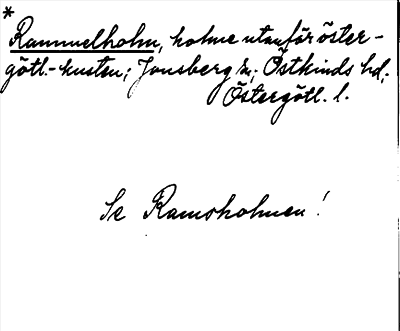 *
Rammelholm, holme utanför öster-
götl.-kusten; Jonsberg sn; Östkinds hd;
Östergötl. l.
Se Ramsholmen!